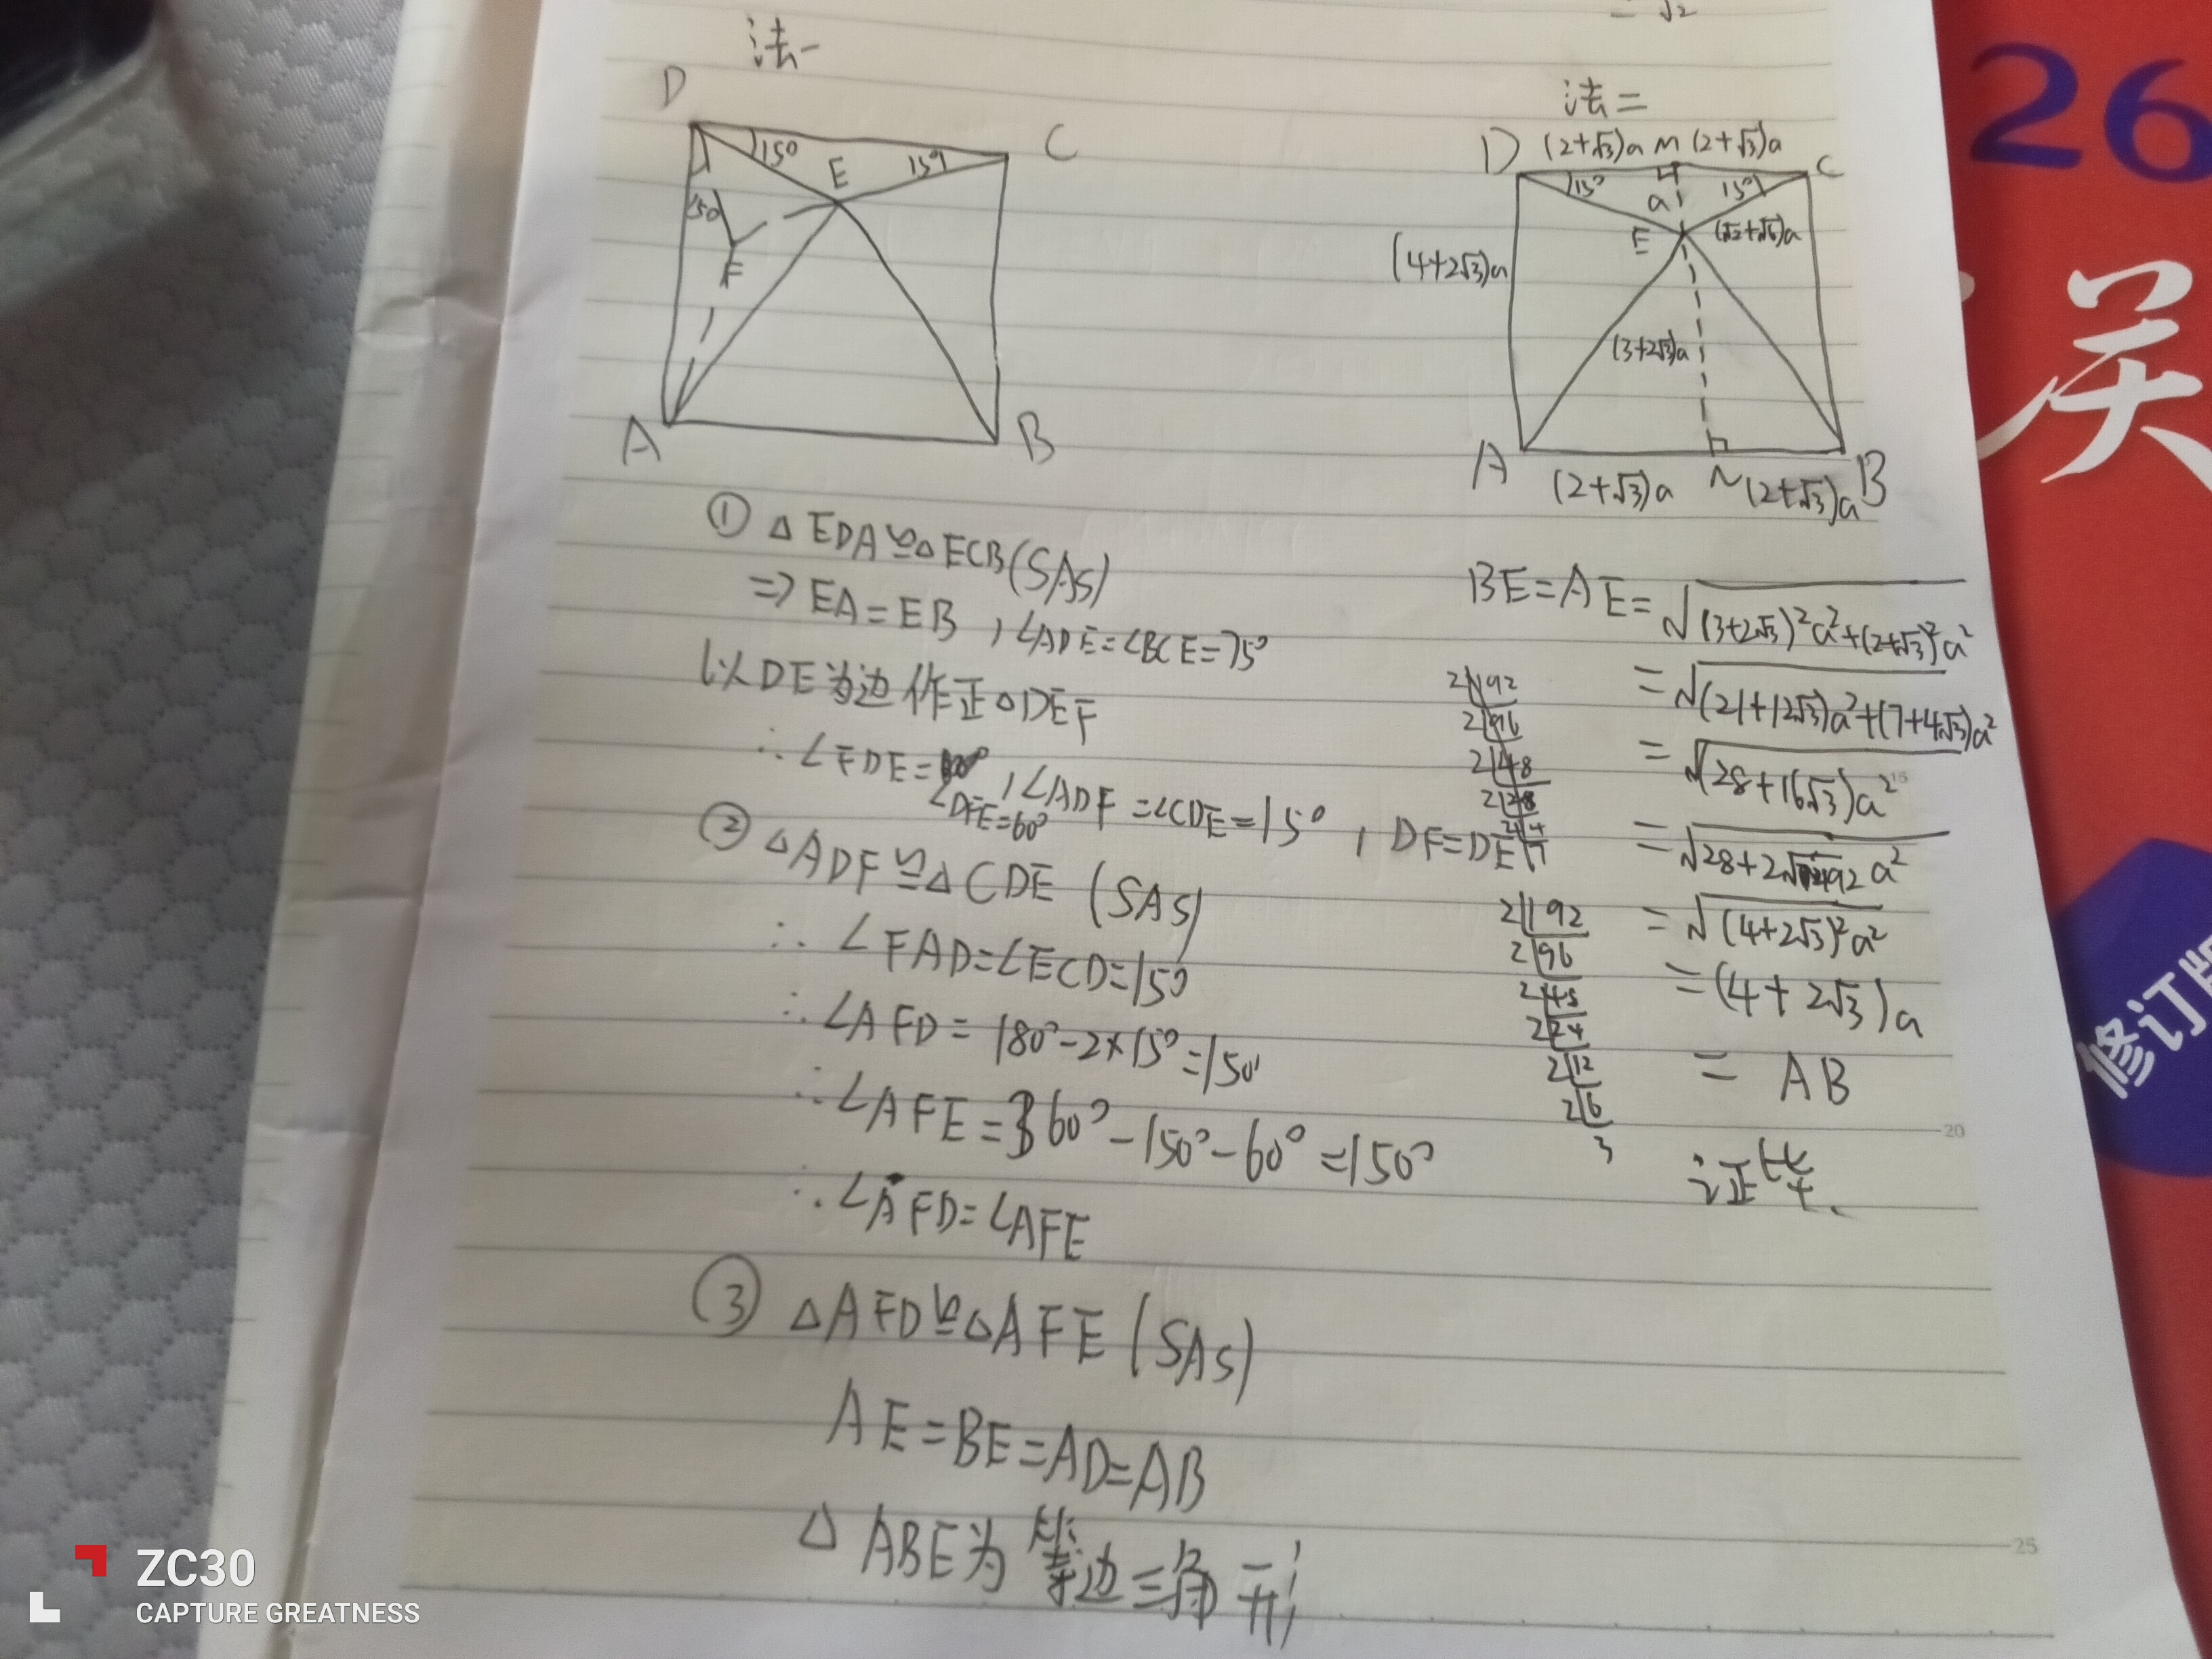 = √2
法一
D
C
15°
E
15°
15°
F
A
B
① △EDA≌△ECB(SAS)
⇒ EA=EB , ∠ADE=∠BCE=75°
以DE为边作正△DEF
∴ ∠FDE=
∠DFE=60°
, ∠ADF=∠CDE=15° , DF=DE
② △ADF≌△CDE (SAS)
∴ ∠FAD=∠ECD=15°
∴ ∠AFD=180°-2×15°=150°
∴ ∠AFE=360°-150°-60°=150°
∴ ∠AFD=∠AFE
③ △AFD≌△AFE (SAS)
AE=BE=AD=AB
△ABE为等边三角形
法二
D (2+√3)a M (2+√3)a
C
15°
a
15°
E
(√2+√6)a
(4+2√3)a
(3+2√3)a
A
(2+√3)a
N
(2+√3)a
B
BE=AE=√(3+2√3)²a²+(2+√3)²a²
=√(21+12√3)a²+(7+4√3)a²
=√(28+16√3)a²
=√28+2√192 a²
=√(4+2√3)²a²
=(4+2√3)a
= AB
证毕.
2 192
2 96
2 48
2 28
7
2 192
2 96
2 48
2 24
2 12
2 6
3
15
20
25
26
关
修订版
ZC30
CAPTURE GREATNESS